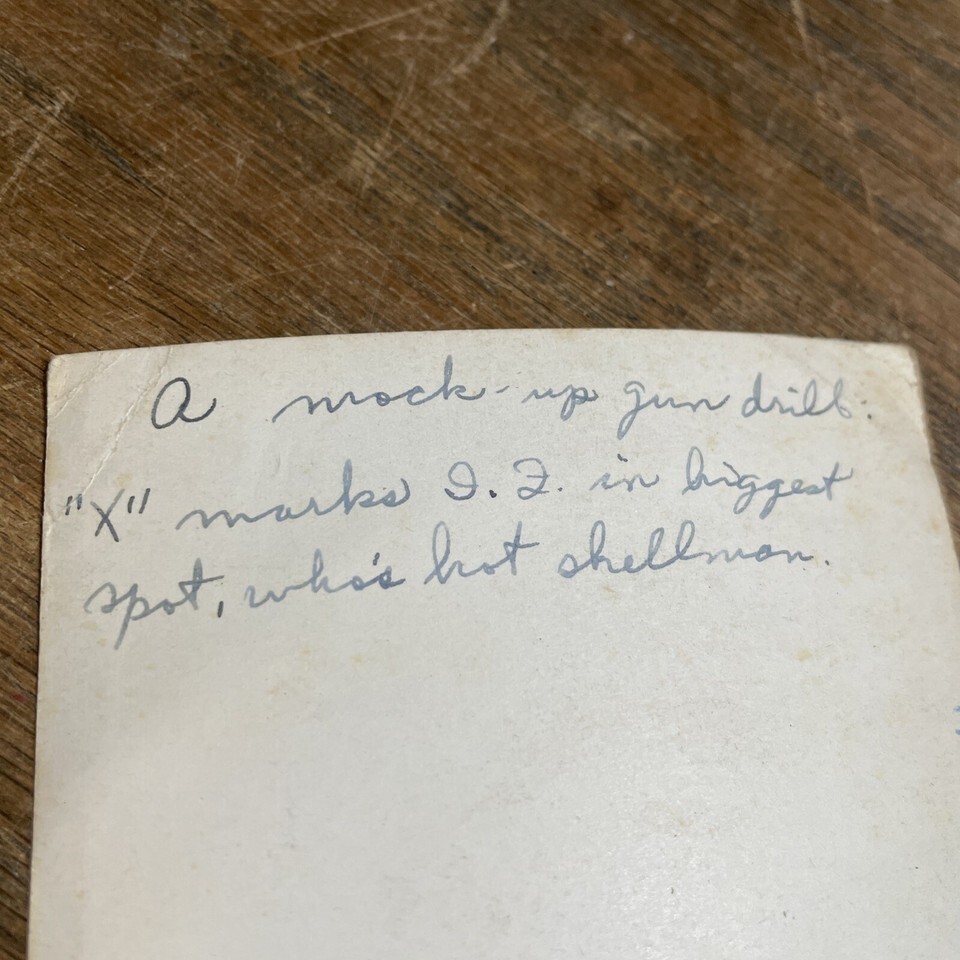 A mock-up gun drill.
"X" marks I. F. in biggest
spot, who's hot shellman.